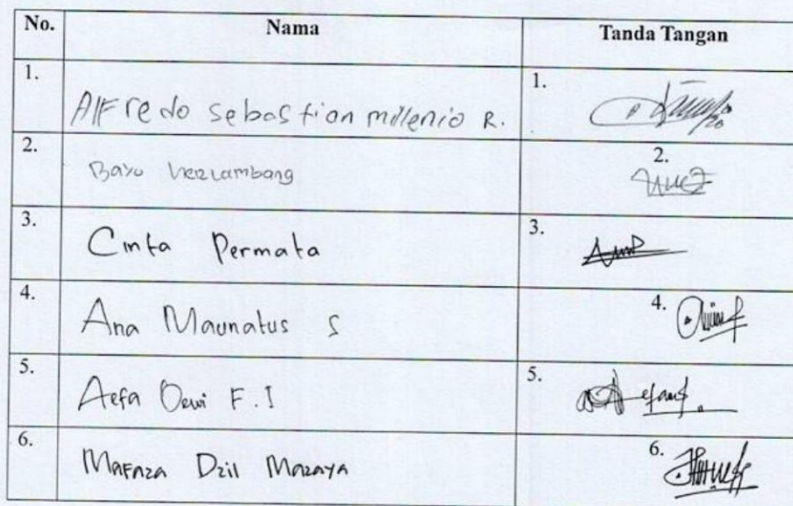 No. Nama Tanda Tangan
1. Alfredo Sebastian millenio R. 1.
2. Bayu 2.
3. Cinta Permata 3.
4. Ana Maunatus S 4.
5. Aefa Dewi F. I 5.
6. Mafaza Dzil Mazaya 6.